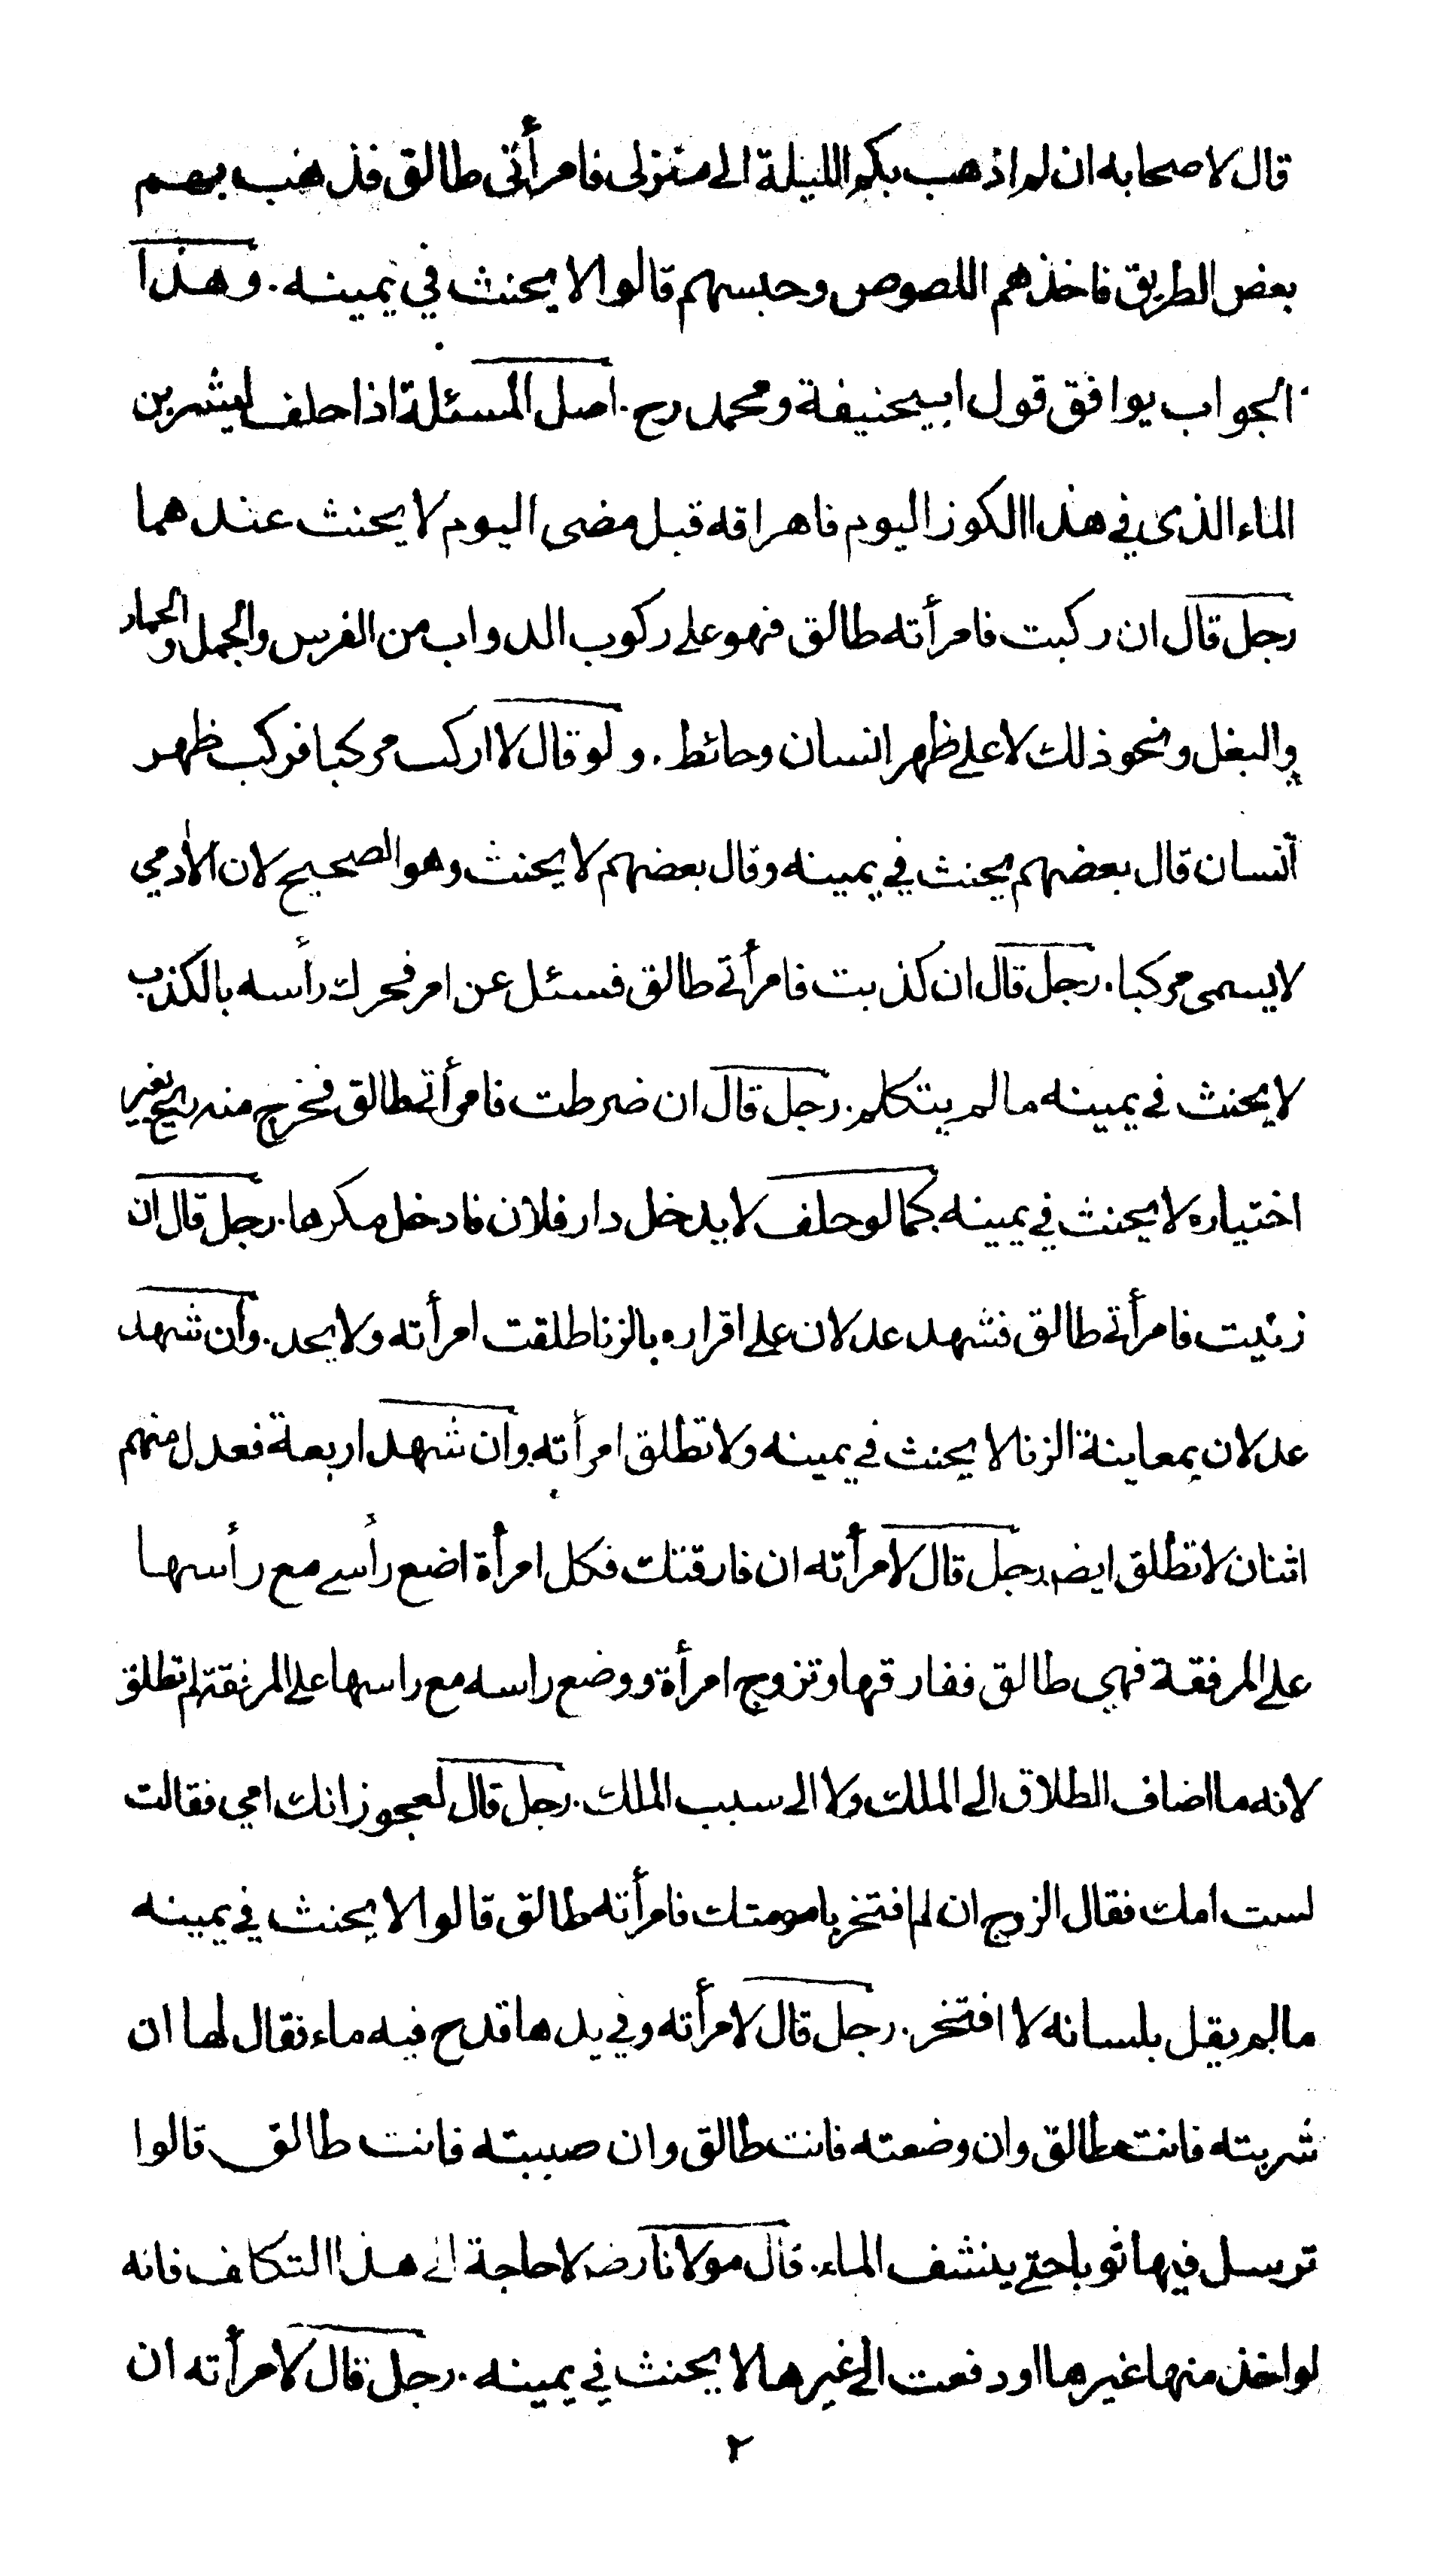 قال لاصحابه ان لم اذهب بكم الليلة الى منزلى فامرأتى طالق فذهب بهم
بعض الطريق فاخذهم اللصوص وحبسهم قالوا لا يحنث في يمينه. وهذا
الجواب يوافق قول ابيحنيفة ومحمد رح. اصل المسئلة اذا حلف ليشربن
الماء الذى في هذا الكوز اليوم فاهراقه قبل مضى اليوم لا يحنث عندهما
رجل قال ان ركبت فامرأته طالق فهو على ركوب الدواب من الفرس والجمل والحمار
والبغل ونحو ذلك لا على ظهر انسان وحائط. ولو قال لا اركب مركبا فركب ظهر
انسان قال بعضهم يحنث في يمينه وقال بعضهم لا يحنث وهو الصحيح لان الأدمي
لا يسمى مركبا. رجل قال ان كذبت فامرأتي طالق فسئل عن امر فحرك رأسه بالكذب
لا يحنث في يمينه ما لم يتكلم. رجل قال ان ضرطت فامرأتي طالق فخرج منه ريح بغير
اختياره لا يحنث في يمينه كما لو حلف لا يدخل دار فلان فادخل مكرها. رجل قال ان
زنيت فامرأتي طالق فشهد عدلان على اقراره بالزنا طلقت امرأته ولا يحد. وان شهد
عدلان بمعاينة الزنا لا يحنث في يمينه ولا تطلق امرأته وان شهد اربعة فعدل منهم
اثنان لا تطلق ايضا. رجل قال لامرأته ان فارقتك فكل امرأة اضع رأسي مع رأسها
على المرفقة فهي طالق ففارقها وتزوج امرأة ووضع راسه مع راسها على المرفقة لم تطلق
لانه ما اضاف الطلاق الى الملك ولا الى سبب الملك. رجل قال لعجوز انك امي فقالت
لست امك فقال الزوج ان لم افتخر بامومتك فامرأته طالق قالوا لا يحنث في يمينه
ما لم يقل بلسانه لا افتخر. رجل قال لامرأته وفي يدها قدح فيه ماء فقال لها ان
شربته فانت طالق وان وضعته فانت طالق وان صببته فانت طالق قالوا
ترسل فيها ثوبا حتى ينشف الماء. قال مولانا رضـ لا حاجة الى هذا التكلف فانه
لو اخذ منها غيرها او دفعت الى غيرها لا يحنث في يمينه. رجل قال لامرأته ان
٢